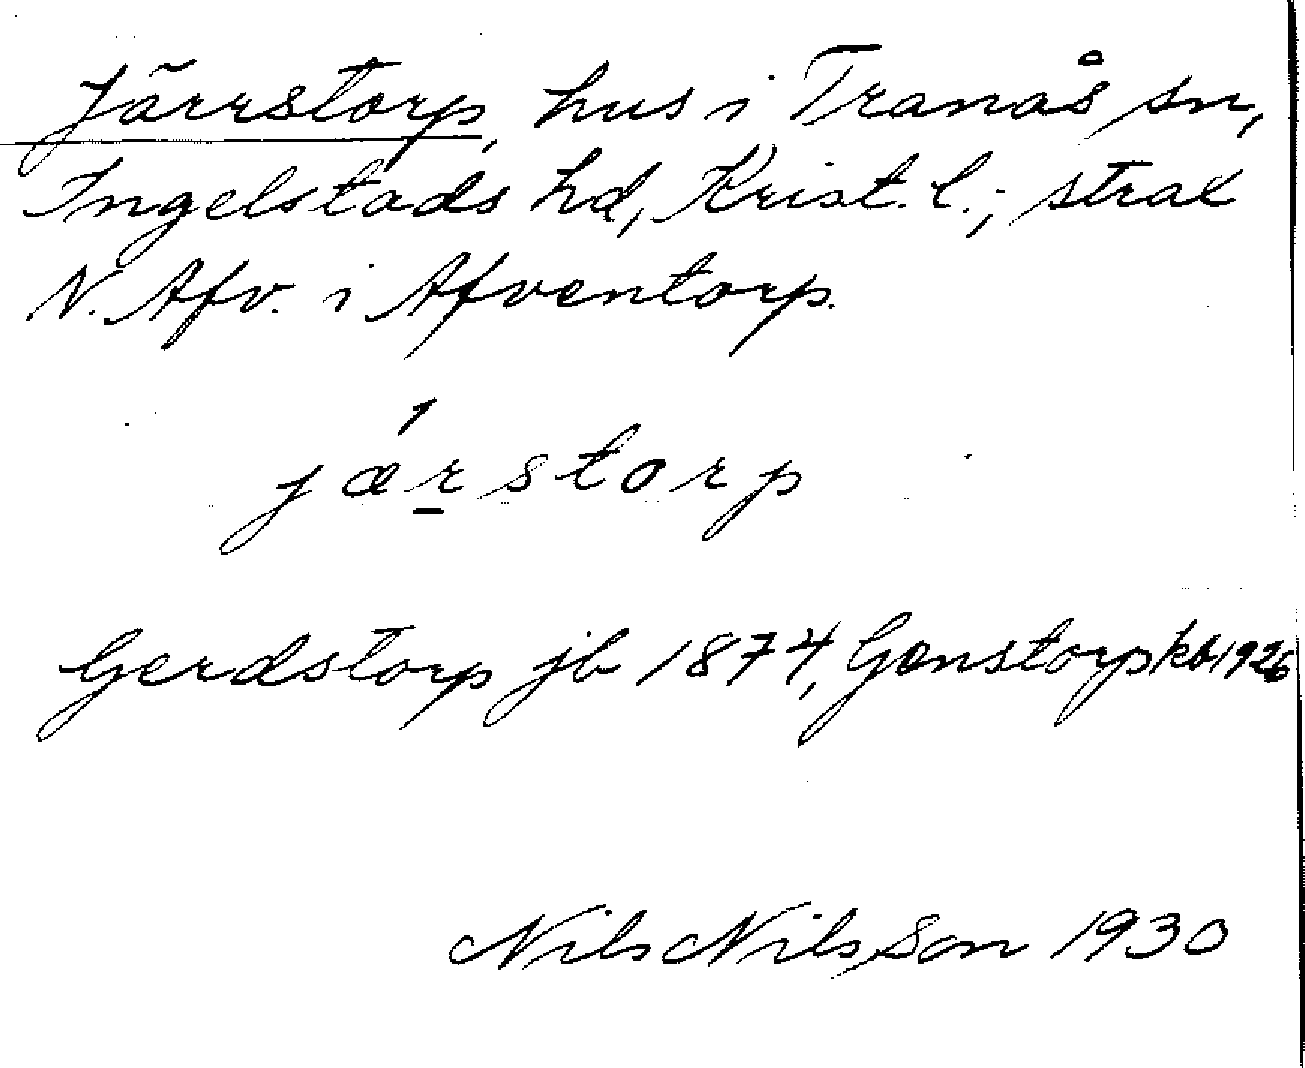 Järrstorp, hus i Tranås sn,
Ingelstads hd, Krist. l.; strax
N. Afv. i Afventorp.
jǽrstorp
Gerdstorp jb 1874, Genstorp kb 1926
Nils Nilsson 1930